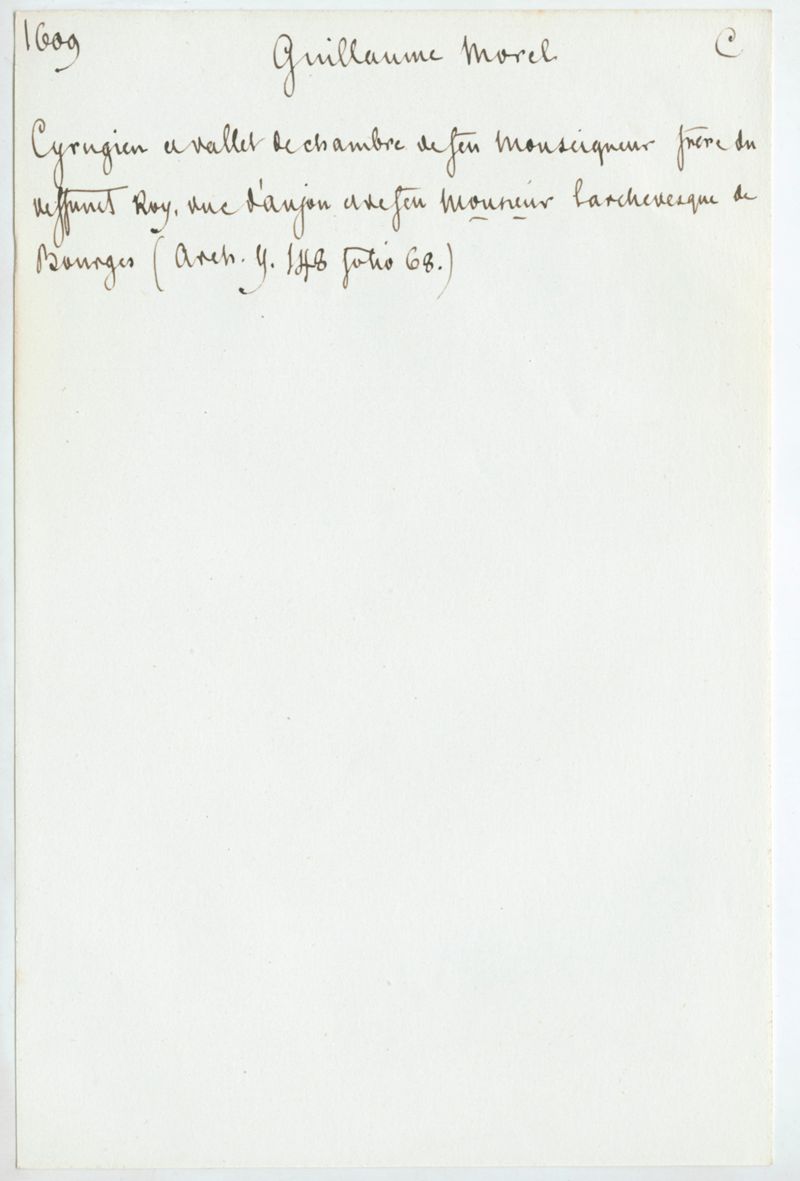 1609 Guillaume Morel C
Cyrugien et vallet de chambre de feu Monseigneur frère du
deffunct Roy, duc d'anjou et de feu Monsieur Larchevesque de
Bourges (Arch. Y. 148 folio 68.)